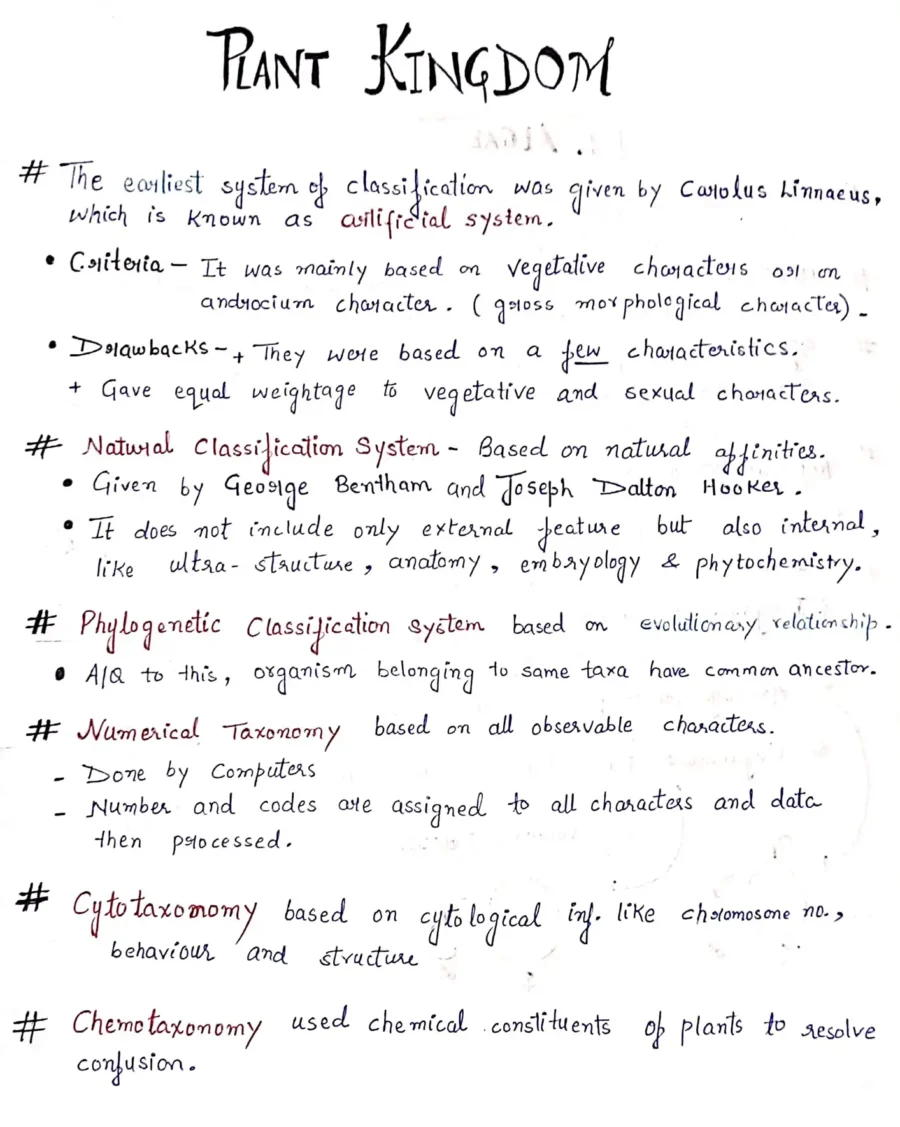 PLANT KINGDOM
# The earliest system of classification was given by Carolus Linnaeus,
which is known as artificial system.
• Criteria – It was mainly based on vegetative characters or on
androcium character. (gross morphological character) -
• Drawbacks – + They were based on a few characteristics.
+ Gave equal weightage to vegetative and sexual characters.
# Natural Classification System - Based on natural affinities.
• Given by George Bentham and Joseph Dalton Hooker.
• It does not include only external feature but also internal,
like ultra-structure, anatomy, embryology & phytochemistry.
# Phylogenetic Classification System based on evolutionary relationship.
• A/Q to this, organism belonging to same taxa have common ancestor.
# Numerical Taxonomy based on all observable characters.
- Done by Computers
- Number and codes are assigned to all characters and data
then processed.
# Cytotaxonomy based on cytological inf. like chromosone no.,
behaviour and structure
# Chemotaxonomy used chemical constituents of plants to resolve
confusion.